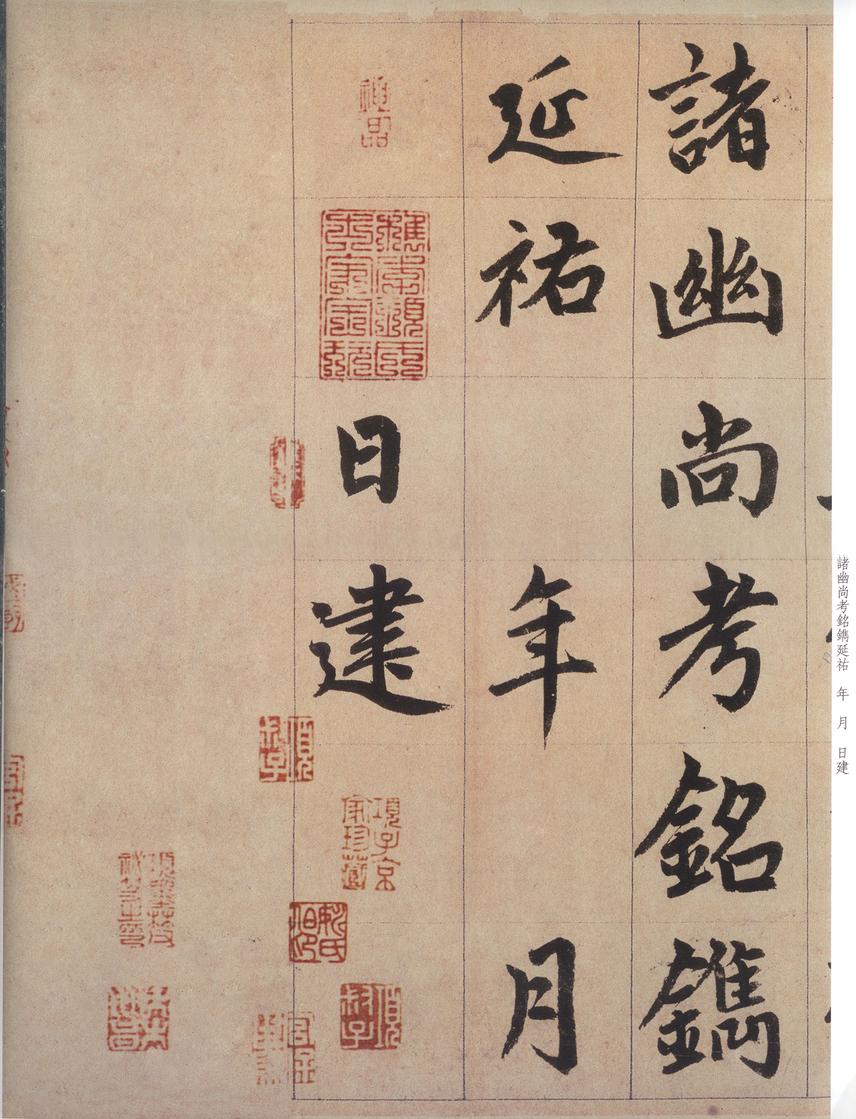 諸幽尚考銘鐫
延祐 年 月
日建
神品
項子京家珍藏
諸幽尚考銘鐫延祐 年 月 日建